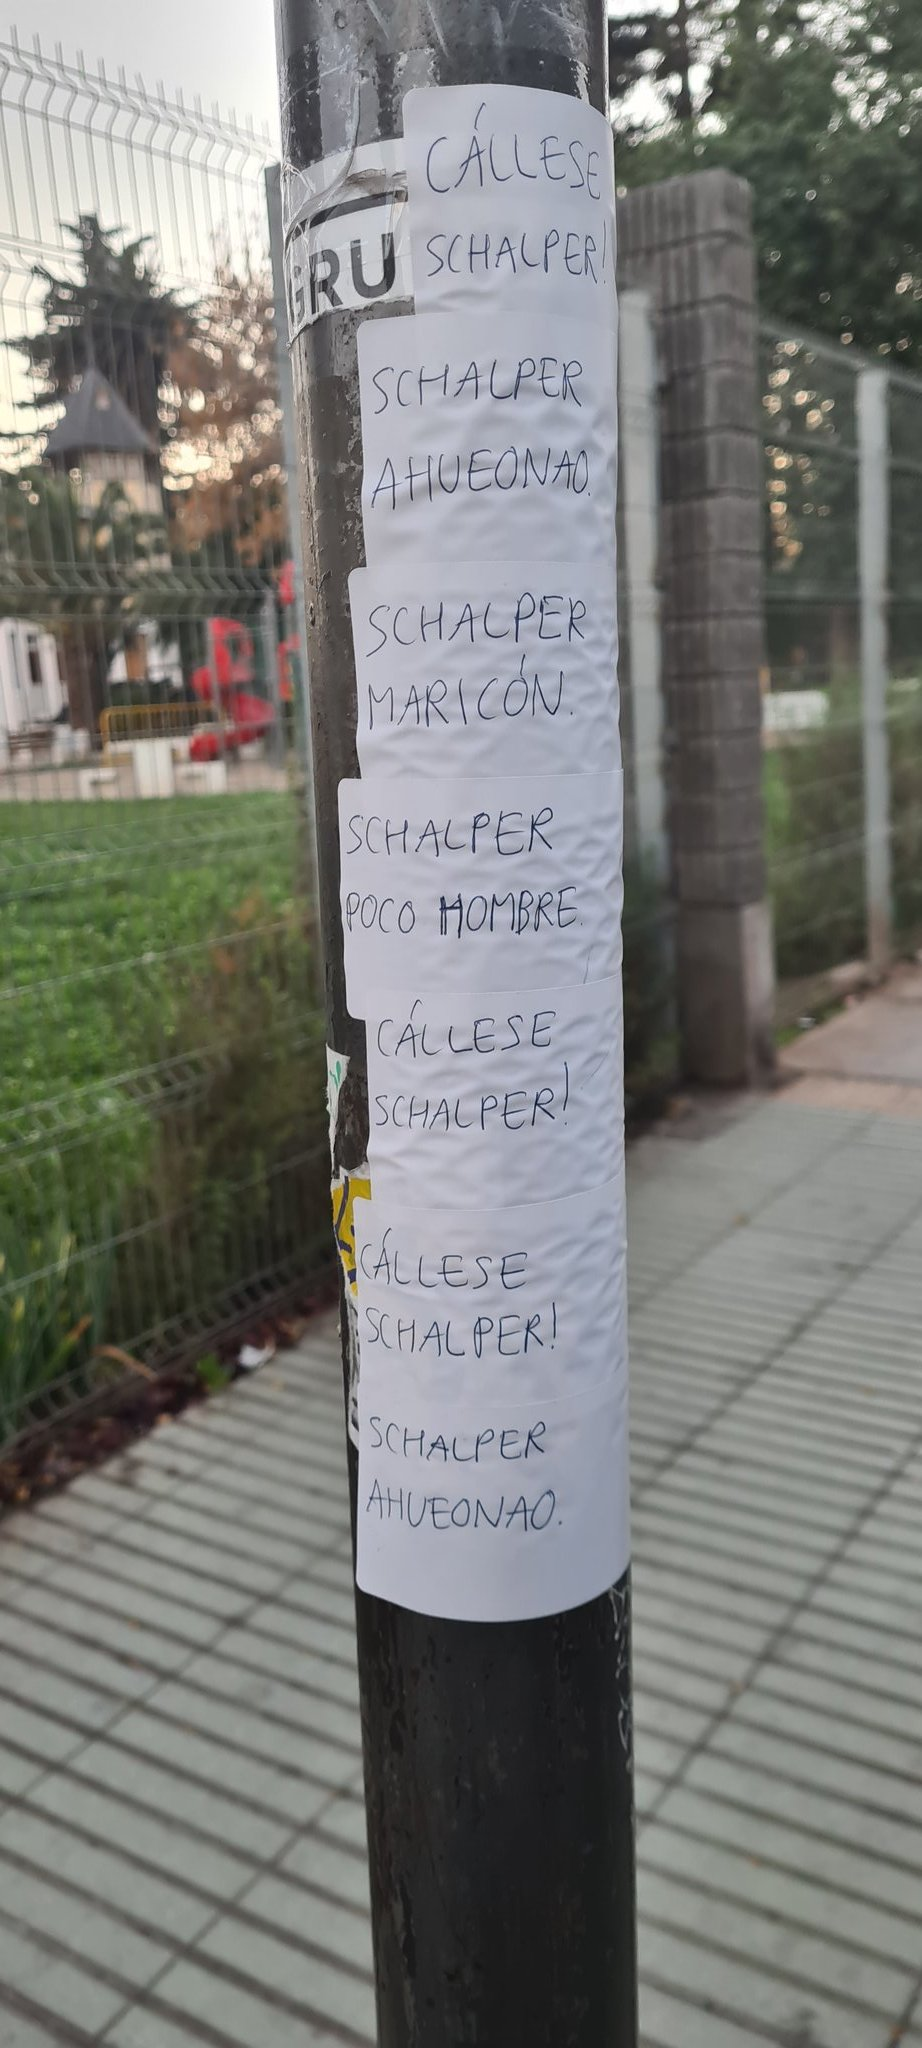 GRU
CÁLLESE
SCHALPER!
SCHALPER
AHUEONAO.
SCHALPER
MARICÓN.
SCHALPER
POCO HOMBRE.
CÁLLESE
SCHALPER!
CÁLLESE
SCHALPER!
SCHALPER
AHUEONAO.